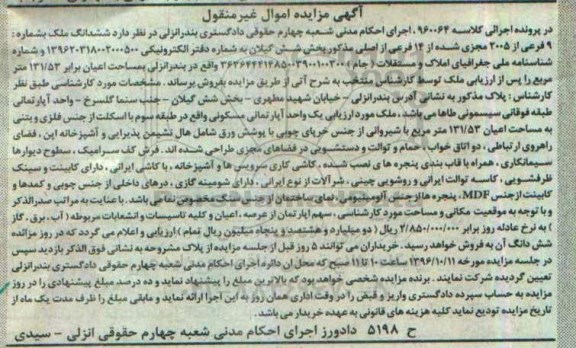 آگهی مزایده اموال غیرمنقول
در پرونده اجرائی کلاسه ۹۶۰۰۶۴ اجرای احکام مدنی شعبه چهارم حقوقی دادگستری بندرانزلی در نظر دارد ششدانگ ملک بشماره:
۹ فرعی از ۲۰۰۵ مجزی شده از ۱۴ فرعی از اصلی مذکور بخش شش گیلان به شماره دفتر الکترونیکی ۱۳۹۶۲۰۳۱۸۰۰۲۰۰۰۵۰۰ و شماره
شناسنامه ملی جغرافیای املاک و مستغلات (جام) واقع در بندرانزلی بمساحت اعیان برابر ۱۳۱/۵۳ متر
مربع را پس از ارزیابی ملک توسط کارشناس منتخب به شرح آتی از طریق مزایده بفروش برساند. مشخصات مورد کارشناسی طبق نظر
کارشناس: پلاک مذکور به نشانی آدرس بندرانزلی - خیابان شهید مطهری - بخش شش گیلان - جنب سینما گلسرخ - واحد آپارتمانی
طبقه فوقانی سیسمونی طاها می باشد، ملک مورد ارزیابی یک واحد آپارتمانی مسکونی واقع در طبقه سوم با اسکلت از جنس فلزی و بتنی
به مساحت اعیان ۱۳۱/۵۳ متر مربع با شیروانی از جنس خرپای چوبی با پوشش ورق شامل هال نشیمن پذیرایی و آشپزخانه اپن، فضای
راهروی ارتباطی، دو اتاق خواب، حمام و توالت و دستشویی در فضاهای مجزی طراحی شده اند. فرش کف سرامیک، سطوح دیوارها
سیمانکاری، همراه با قاب بندی پنجره ها ی نصب شیده، کاشی کاری سرویس ها و آشپزخانه، با کاشی ایرانی، دارای کابینت و سینک
ظرفشویی، کاسه توالت ایرانی و روشویی چینی، شرآلات از نوع ایرانی، دارای شومینه گازی، درهای داخلی از جنس چوبی و کمدها و
کابینت از جنس MDF، پنجره ها از جنس آلومینیومی، نمای ساختمان از جنس سنگ مخصوص نما می باشد. با عنایت به مراتب صدرالذکر
و با توجه به موقعیت مکانی و مساحت مورد کارشناسی، سهم اپارتمان از عرصه، اعیان و کلیه تاسیسات و انشعابات مربوطه (آب، برق، گاز
) به نرخ عادله روز برابر ۲/۸۵۰/۰۰۰/۰۰۰ ریال (دو میلیارد و هشتصد و پنجاه میلیون ریال تمام) ارزیابی و اعلام می گردد که در روز مزائده
شش دانگ آن به فروش خواهد رسید. خریداران می توانند ۵ روز قبل از جلسه مزایده از پلاک مشروحه به نشانی فوق الذکر بازدید سپس
در جلسه مزایده مورخه ۱۳۹۶/۱۰/۱۱ ساعت ۱۰ تا ۱۱ صبح که محل ان دائره اجرای احکام مدنی شعبه چهارم حقوقی دادگستری بندرانزلی
تعیین گردیده شرکت نمایند. برنده مزایده شخصی خواهد بود که بالاترین مبلغ را پیشنهاد نماید و ده درصد مبلغ پیشنهادی را در روز
مزایده به حساب سپرده دادگستری واریز و قبض را در وقت اداری همان روز به این اجرا ارائه نماید و مابقی مبلغ را ظرف مدت یک ماه از
تاریخ مزایده تودیع نماید کلیه هزینه های قانونی به عهده خریدار می باشد.
ح ۵۱۹۸ دادورز اجرای احکام مدنی شعبه چهارم حقوقی انزلی - سیدی